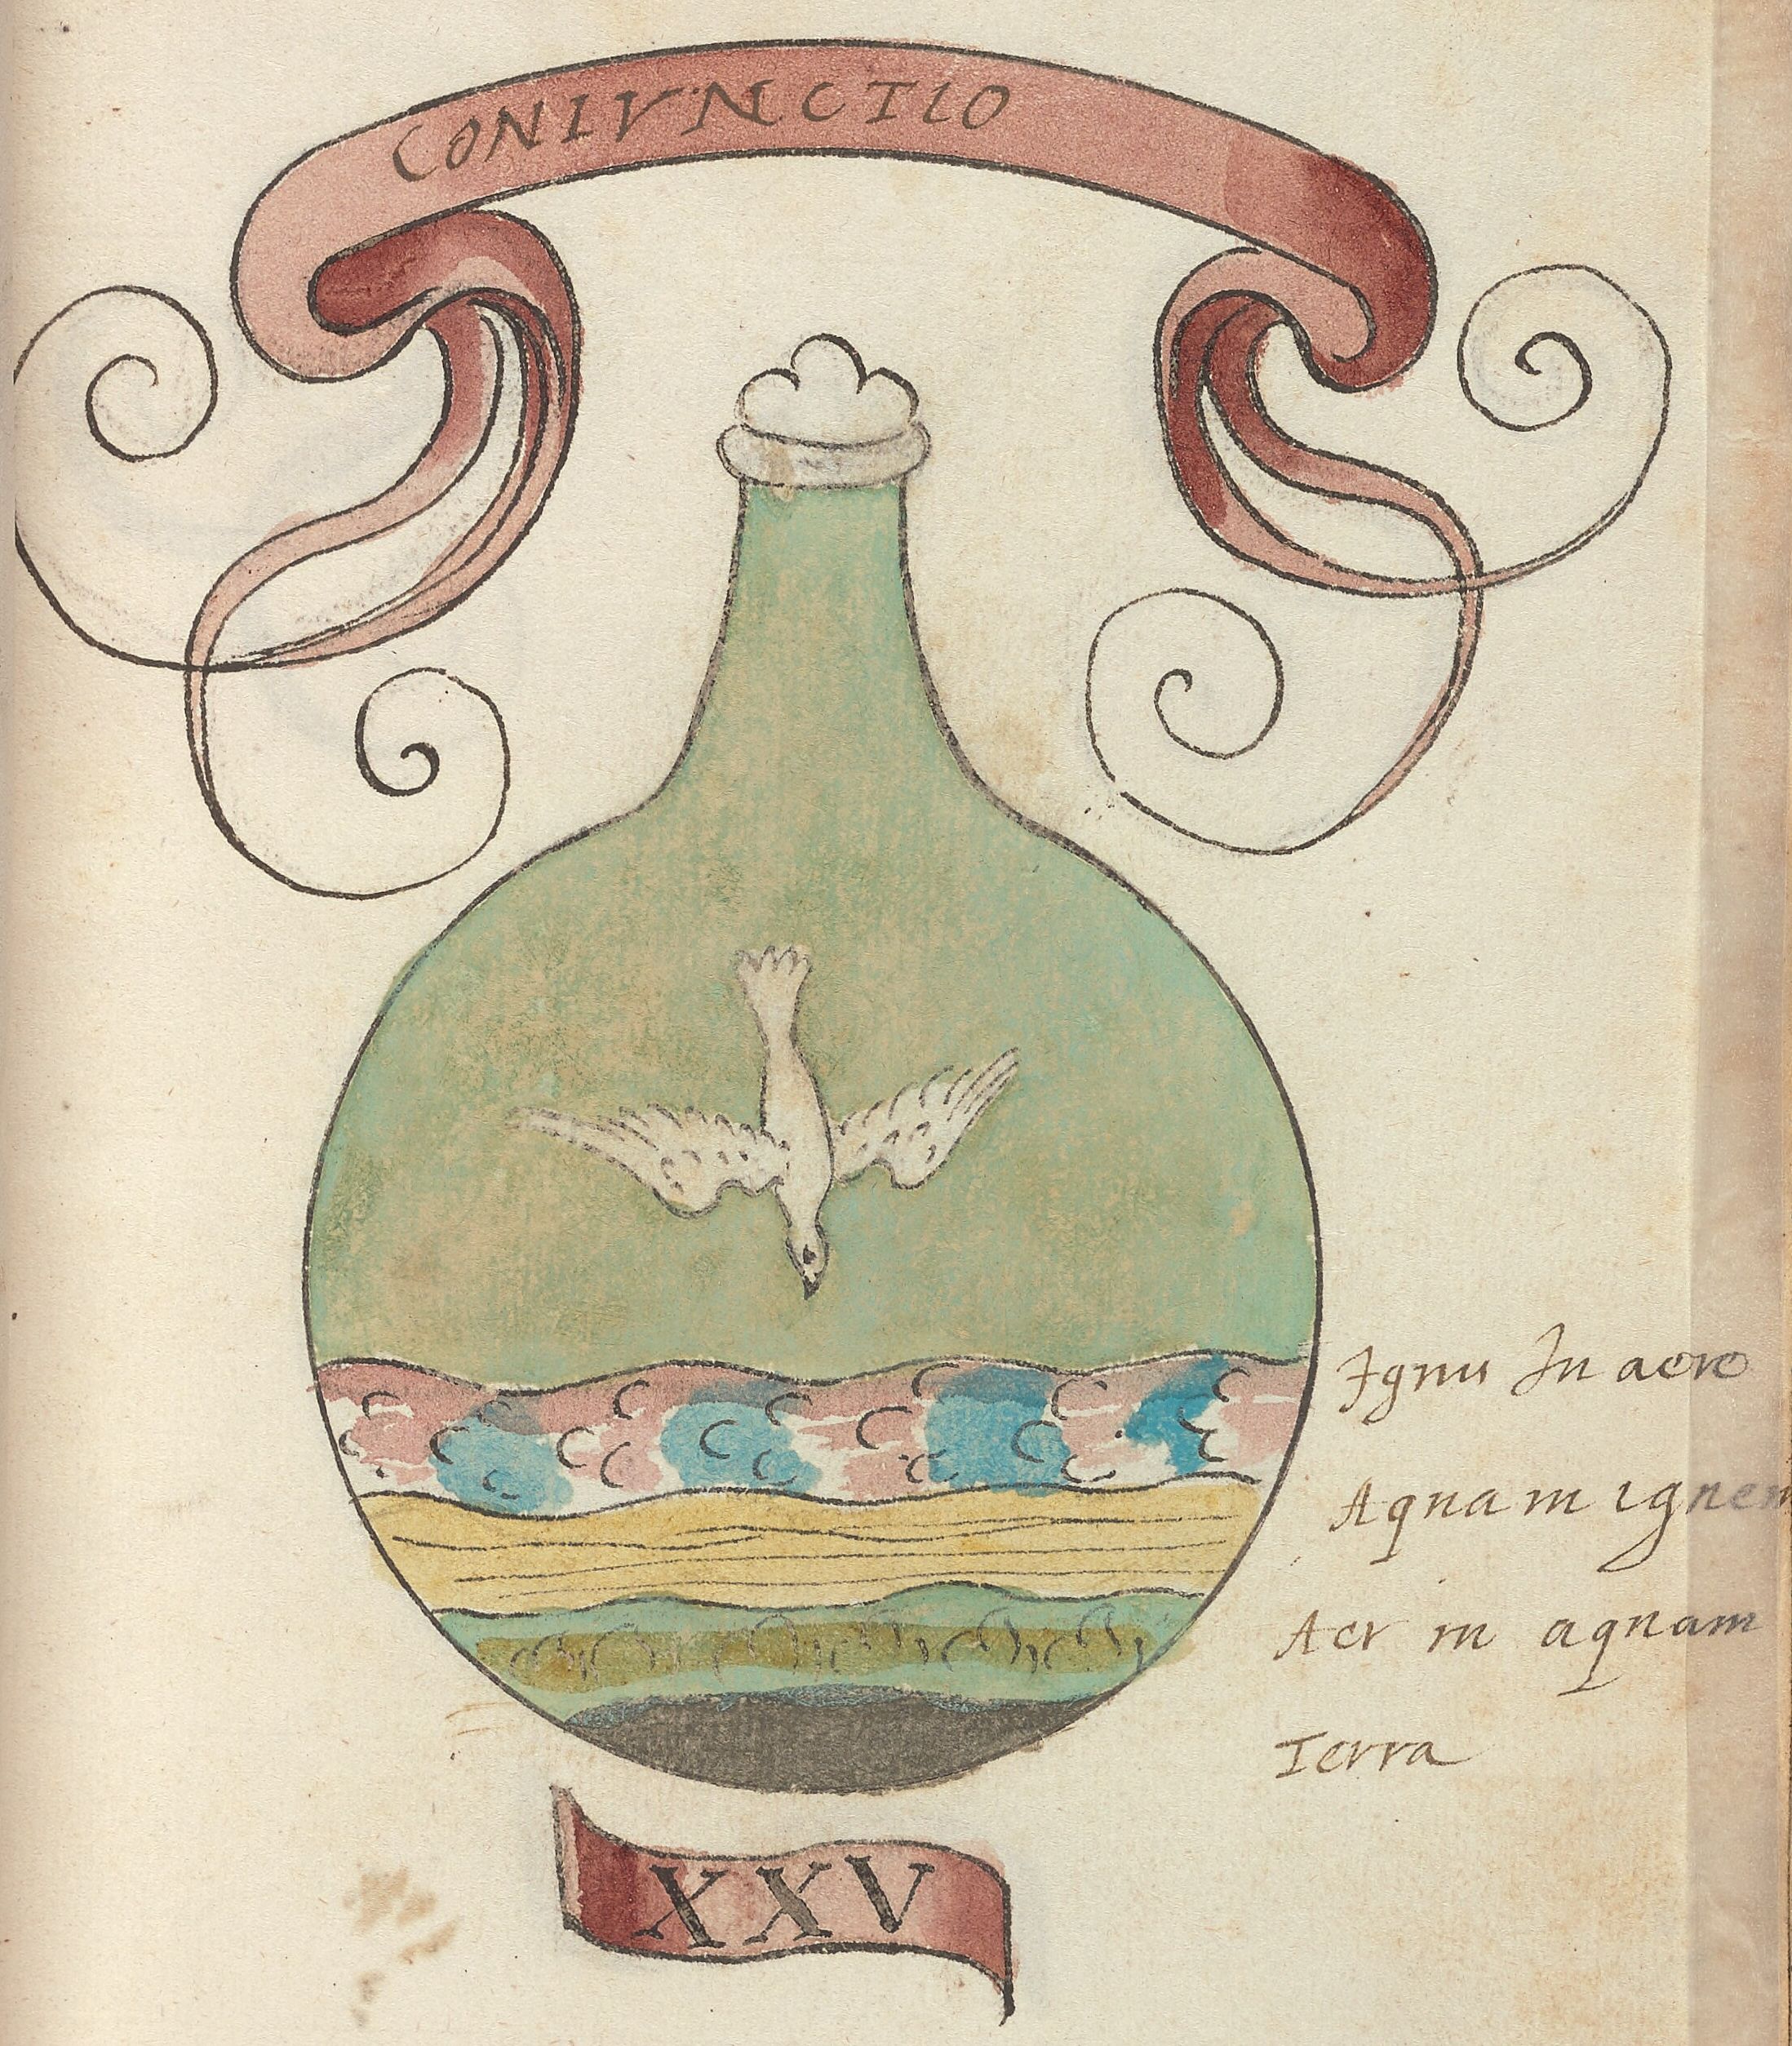 CONIVNCTIO
Ignis In aere
Aqnam ignem
Aer in aqnam
Terra
XXV